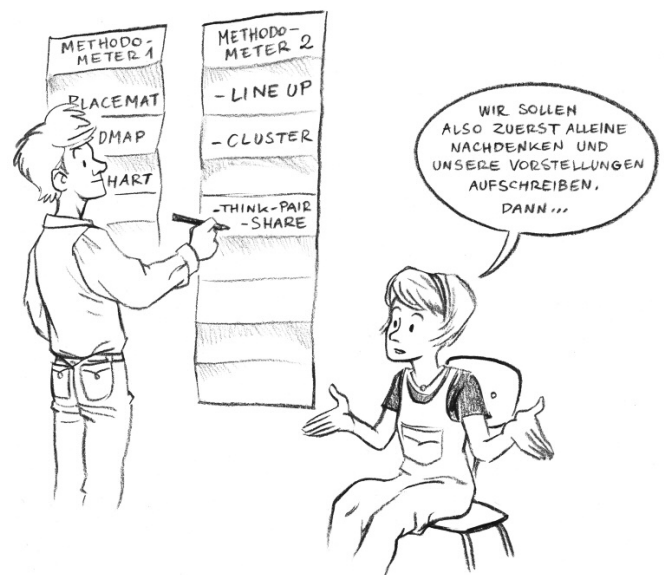 METHODO-
METER 1
PLACEMAT
DMAP
HART
METHODO-
METER 2
- LINE UP
- CLUSTER
-THINK-PAIR
-SHARE
WIR SOLLEN
ALSO ZUERST ALLEINE
NACHDENKEN UND
UNSERE VORSTELLUNGEN
AUFSCHREIBEN.
DANN...